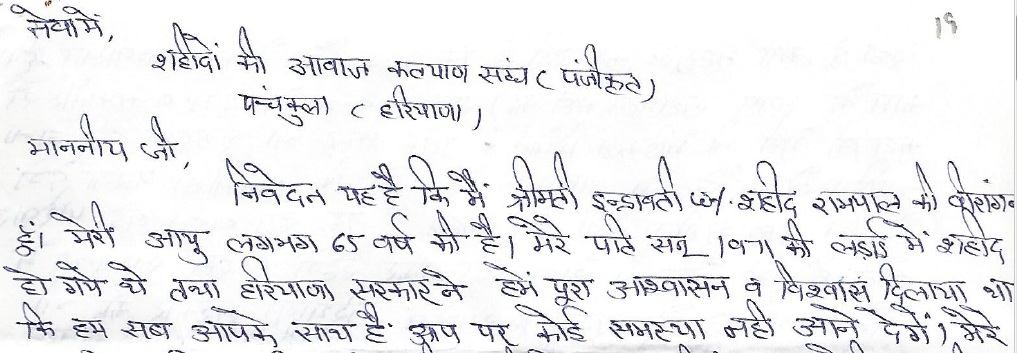 19
सेवामें,
शहीदों की आवाज कल्याण संघ (पंजीकृत)
पन्चंकुला (हरियाणा)
माननीय जी,
निवेदन यह है कि मैं श्रीमती इन्द्रावती w/. शहीद रामपाल की वीरांगन
हूं। मेरी आयु लगभग 65 वर्ष की है। मेरे पति सन् 1971 की लड़ाई में शहीद
हो गये थे तथा हरियाणा सरकार ने हमें पूरा आश्वासन व विश्वास दिलाया था
कि हम सब आपके साथ है आप पर कोई समस्या नही आने देगें। मेरे